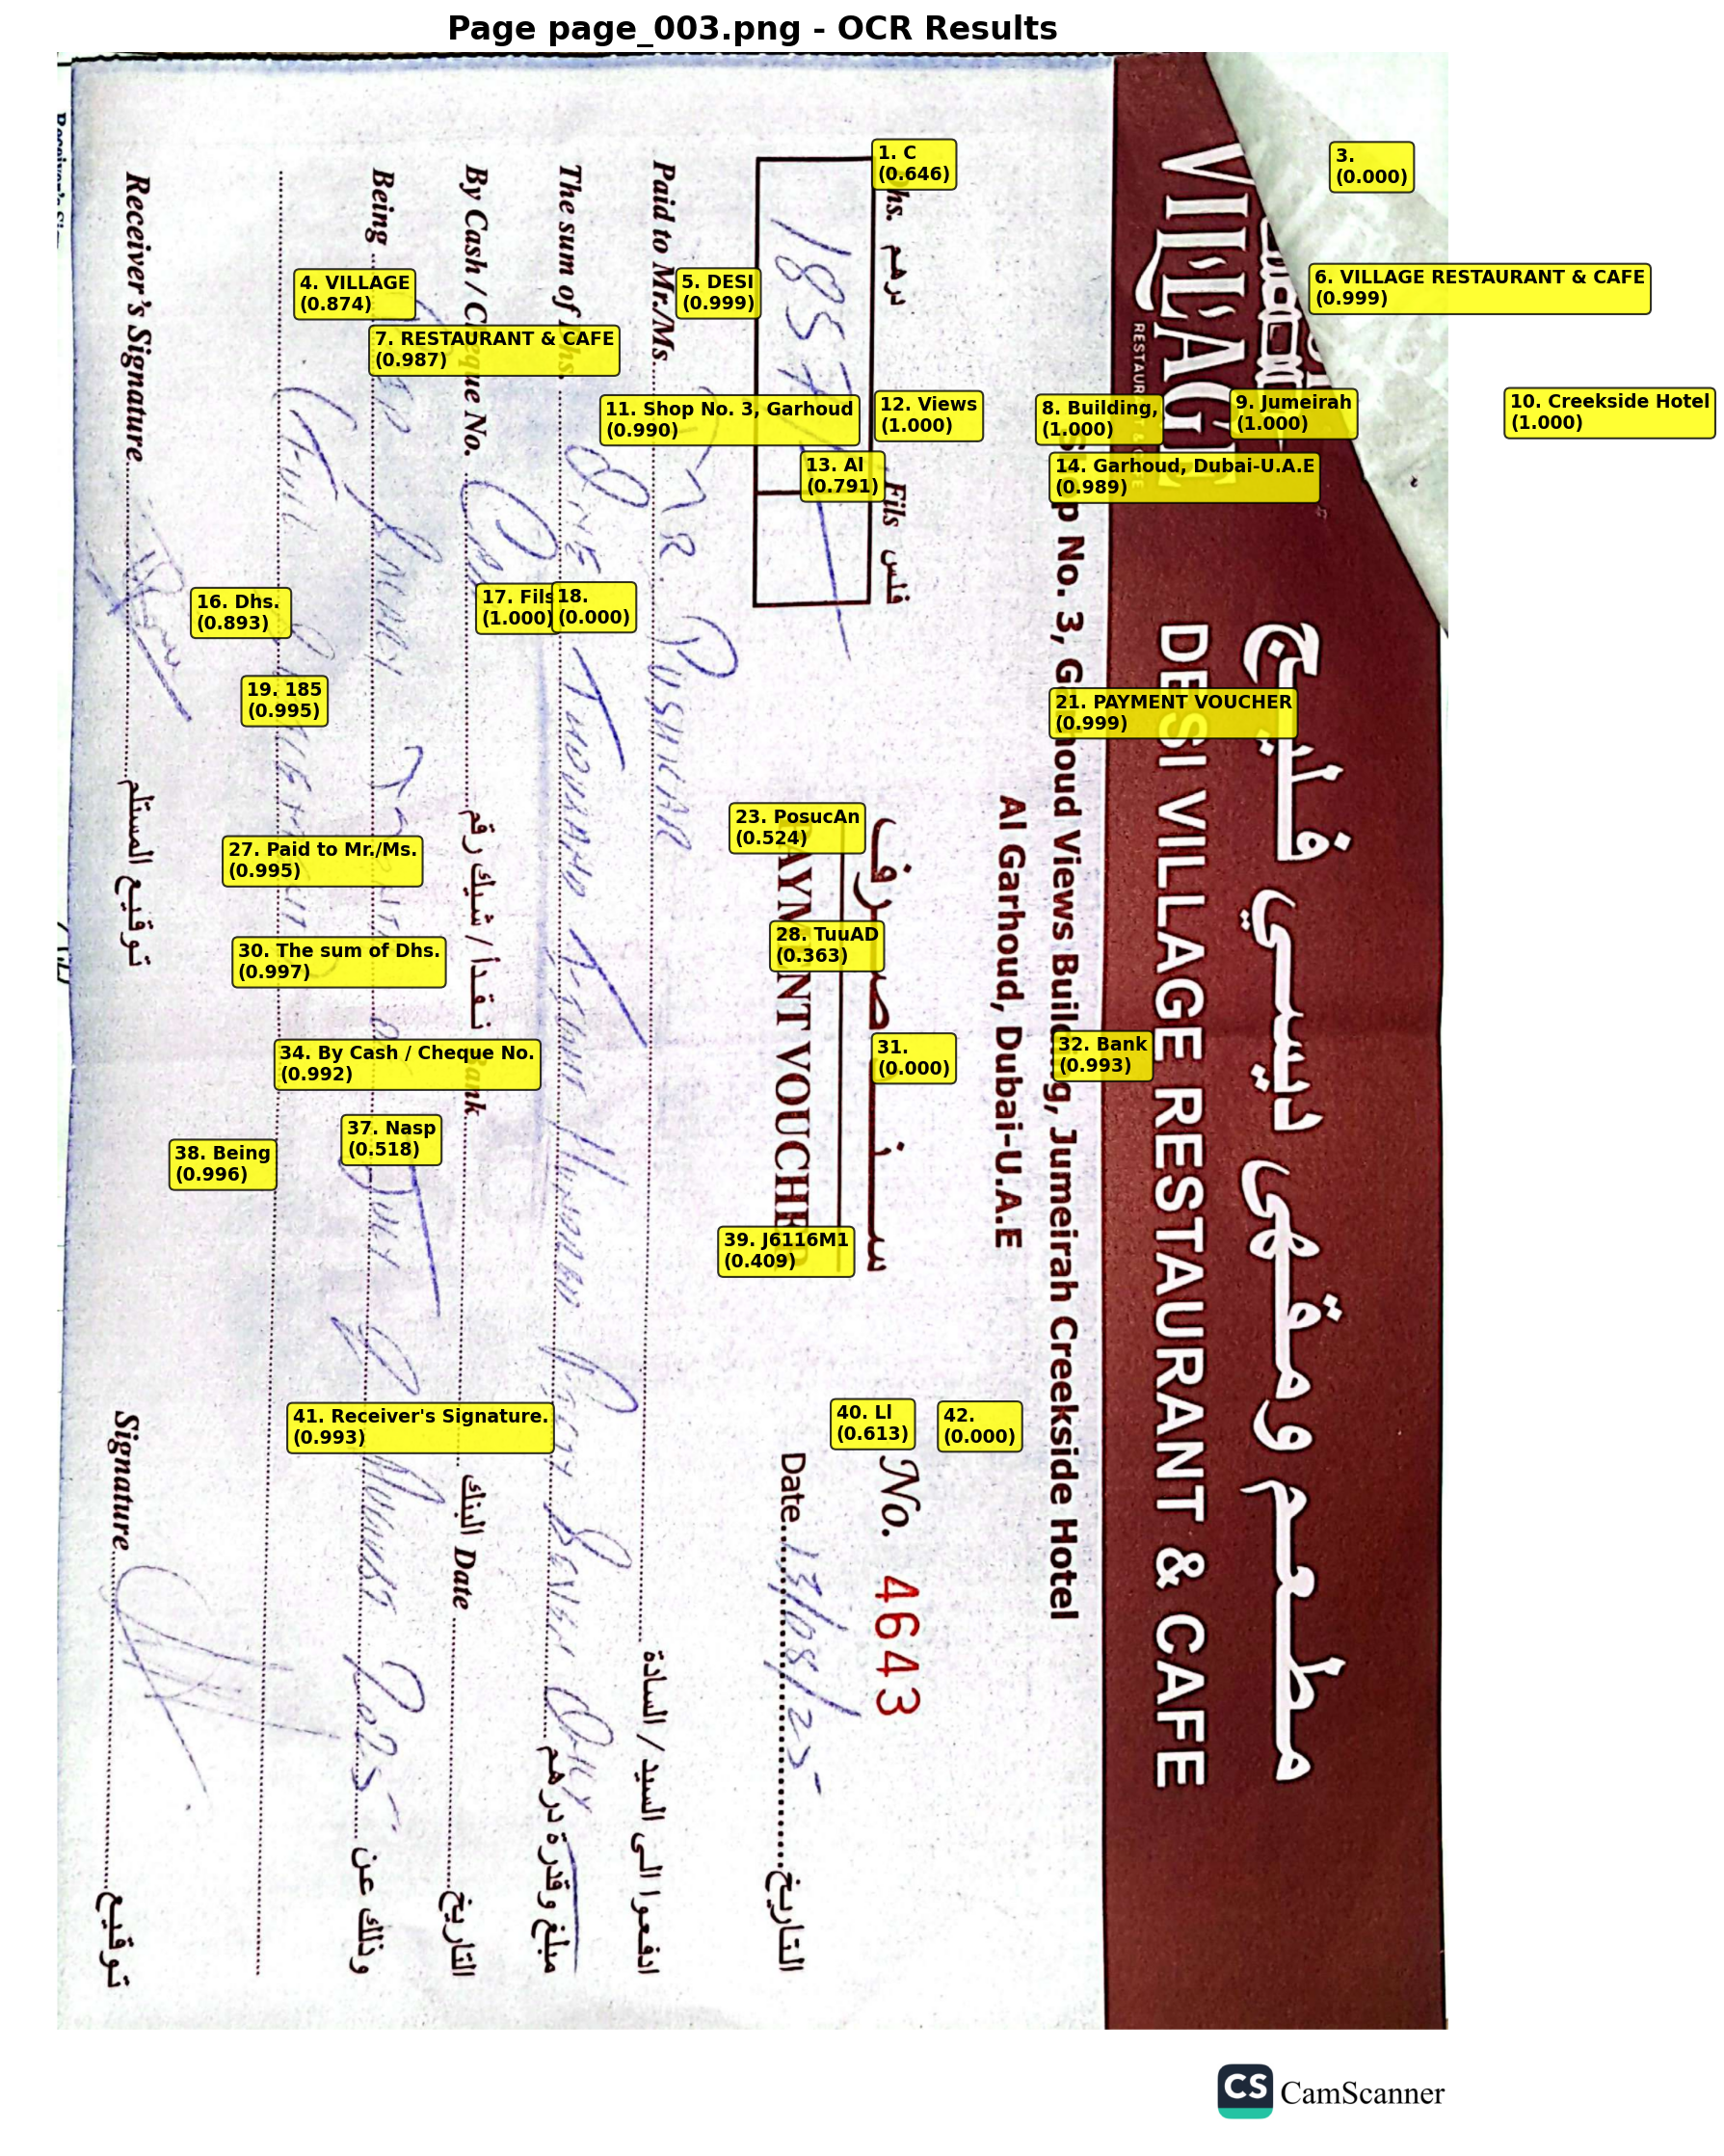 Page page_003.png - OCR Results
1. C
(0.646)
3.
(0.000)
4. VILLAGE
(0.874)
5. DESI
(0.999)
6. VILLAGE RESTAURANT & CAFE
(0.999)
7. RESTAURANT & CAFE
(0.987)
8. Building,
(1.000)
9. Jumeirah
(1.000)
10. Creekside Hotel
(1.000)
11. Shop No. 3, Garhoud
(0.990)
12. Views
(1.000)
13. Al
(0.791)
14. Garhoud, Dubai-U.A.E
(0.989)
16. Dhs.
(0.893)
17. Fils
(1.000)
18.
(0.000)
19. 185
(0.995)
21. PAYMENT VOUCHER
(0.999)
23. PosucAn
(0.524)
27. Paid to Mr./Ms.
(0.995)
28. TuuAD
(0.363)
30. The sum of Dhs.
(0.997)
31.
(0.000)
32. Bank
(0.993)
34. By Cash / Cheque No.
(0.992)
37. Nasp
(0.518)
38. Being
(0.996)
39. J6116M1
(0.409)
40. Ll
(0.613)
41. Receiver's Signature.
(0.993)
42.
(0.000)
مطعم ومقهى ديسي فليج
VILLAGE DESI VILLAGE RESTAURANT & CAFE
RESTAURANT & CAFE
Shop No. 3, Garhoud Views Building, Jumeirah Creekside Hotel
Al Garhoud, Dubai-U.A.E
Dhs. درهم Fils فلس سند صرف No. 4643
1857/- PAYMENT VOUCHER Date 13/08/25 التاريخ
Paid to Mr./Ms. MR. PUSHKAR ادفعوا الى السيد / السادة
The sum of Dhs. ONE THOUSAND EIGHT HUNDRED FIFTY SEVEN ONLY مبلغ وقدرة درهم
By Cash / Cheque No. نقداً / شيك رقم Bank البنك Date التاريخ
Being SALARY JULY & AUGUST 2025 وذلك عن
FULL
Receiver's Signature توقيع المستلم Signature توقيع
CS CamScanner